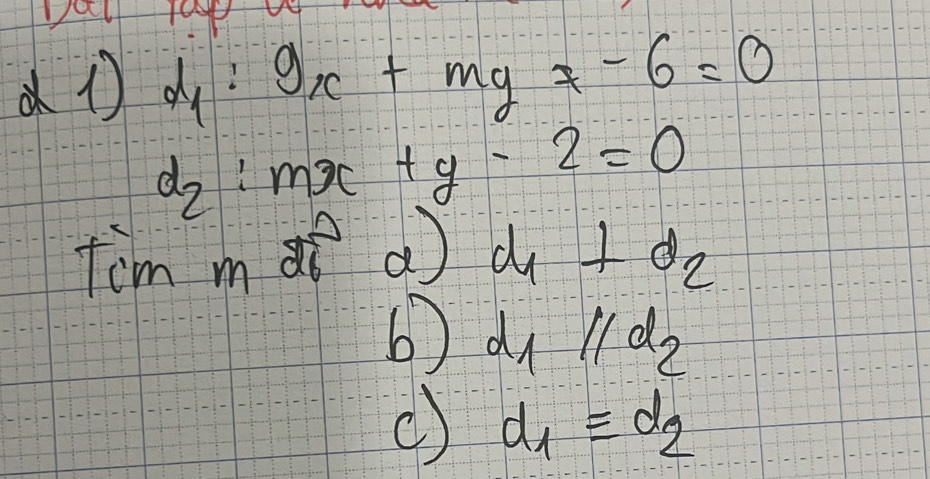 d 1) d₁ : 9x + my - 6 = 0
d₂ : mx + y - 2 = 0
Tìm m để a) d₁ ⊥ d₂
b) d₁ // d₂
c) d₁ ≡ d₂